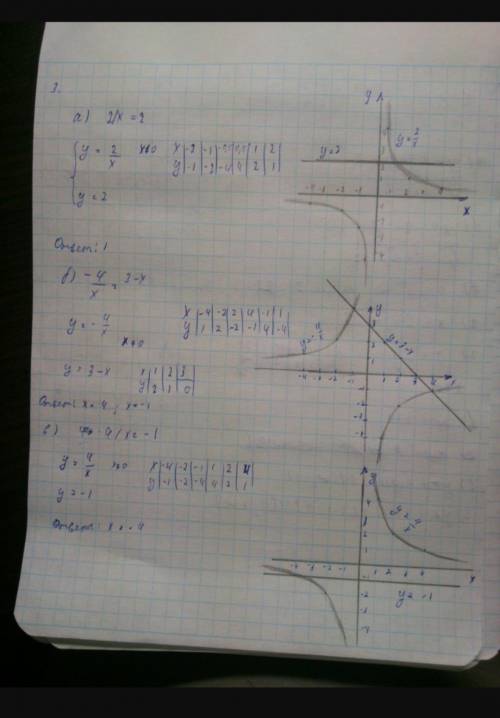 а) 2/x = 2
y = 2/x x≠0
x -2 -1 -0,5 0,5 1 2
y -1 -2 -4 4 2 1
y = 2
Ответ: 1
y=2
y = 2/x
y
x
б) -4/x = 3-x
y = -4/x
x≠0
x -4 -2 2 4 -1 1
y 1 2 -2 -1 4 -4
y = 3-x
x 1 2 3
y 2 1 0
Ответ: x=4; x=-1
y=-4/x
y=3-x
y
в) 4/x = -1
y = 4/x x≠0
x -4 -2 -1 1 2 4
y -1 -2 -4 4 2 1
y = -1
Ответ: x = -4
y
y = 4/x
x
y = -1